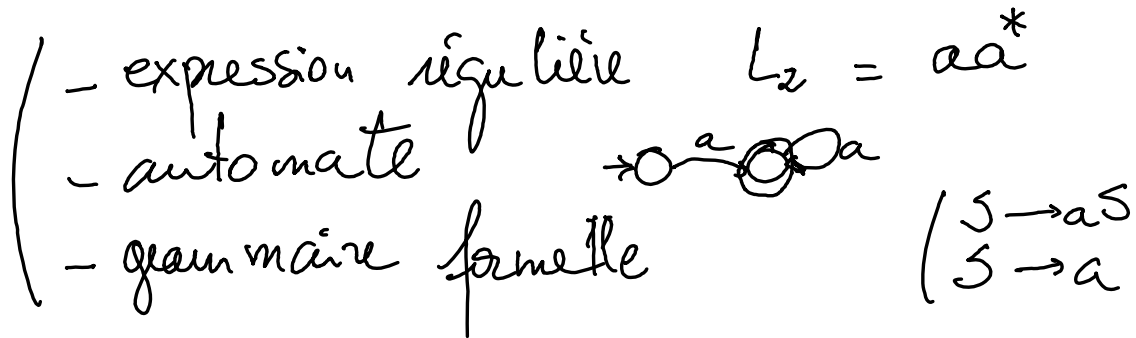 - expression régulière L₂ = aa*
- automate a a
- grammaire formelle
S → aS
S → a